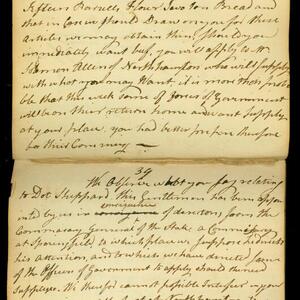 fifteen Barrells Flour two ton Bread and
that in Case should Draw on you for these
Articles we may obtain them, should you
immediately want beef, you will apply to Mr
Allen of Northampton who will supply
with what you may want, it is more than proba
ble that this week some of forces of Government
will be on their return home and want supplys
at your place, you had better prepare therefore
for their Coming
39
We Observe what you say relating
to Doct Sheppard, this Gentleman has been appoi
nted by us in consequence of directions from the
Commissary General of the State a
at Springfield to which place we suppose he directs
his attention, and to which we have directed some
of the Officers of Government to apply should they need
Supplyes. We therefore cannot possible Interfere in your